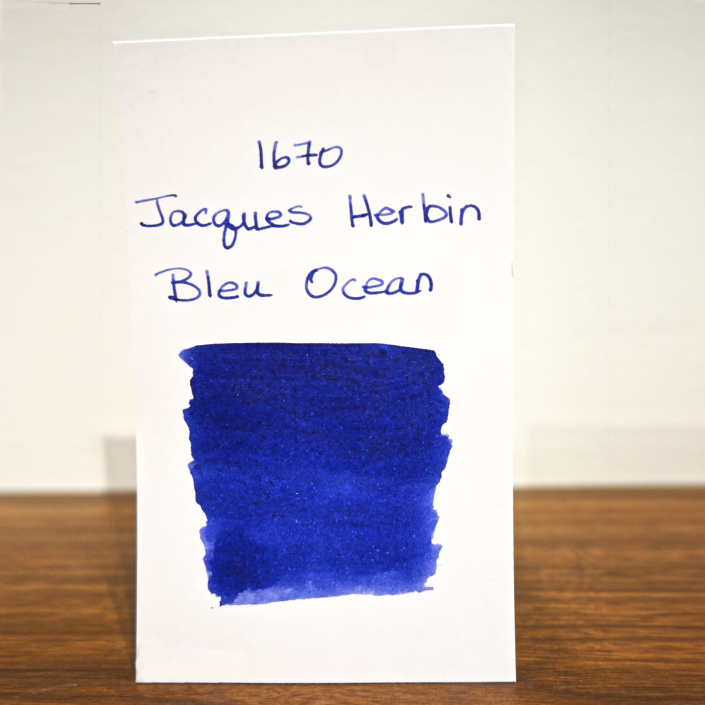 1670
Jacques Herbin
Bleu Ocean